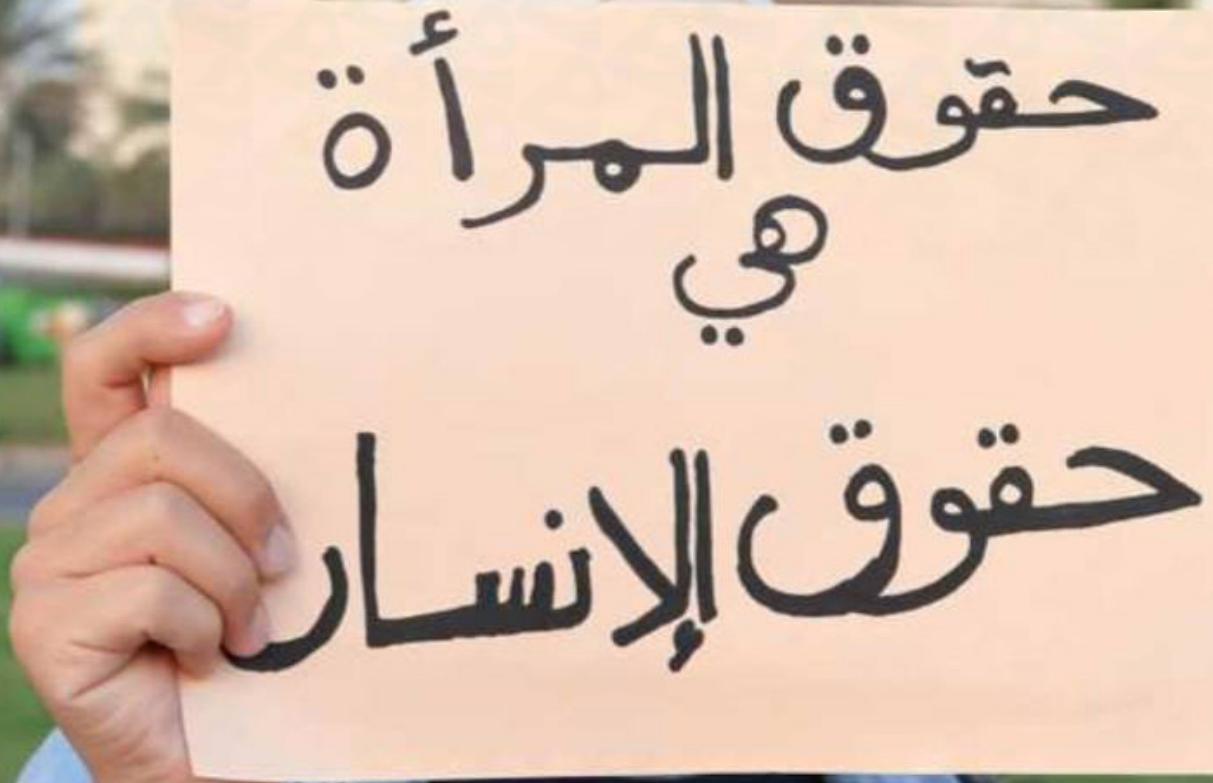 حقوق المرأة
هي
حقوق الإنسان